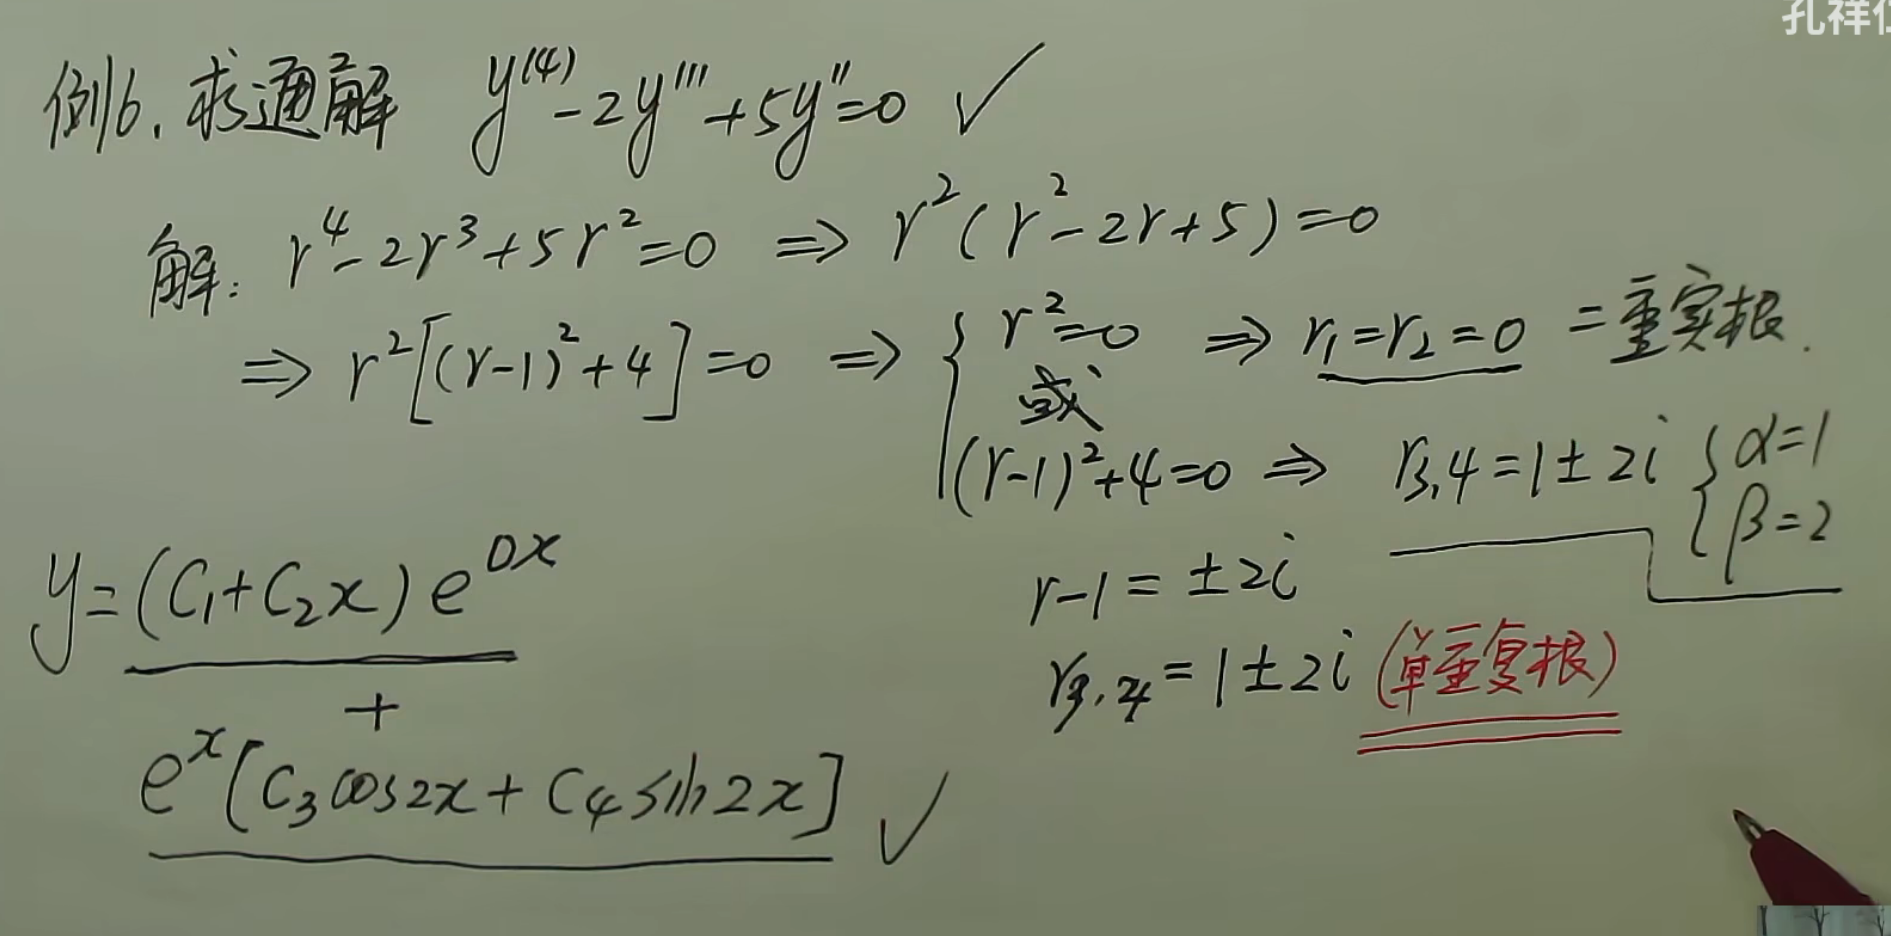 孔祥
例6. 求通解 y⁽⁴⁾-2y'''+5y''=0 ✓
解: r⁴-2r³+5r²=0 ⇒ r²(r²-2r+5)=0
⇒ r²[(r-1)²+4]=0 ⇒ { r²=0 ⇒ r₁=r₂=0 二重实根.
或
(r-1)²+4=0 ⇒ r₃,₄=1±2i { α=1
β=2
r-1=±2i
r₃,₄=1±2i (单重复根)
y=(C₁+C₂x)e⁰ˣ
+
eˣ[C₃cos2x+C₄sin2x] ✓